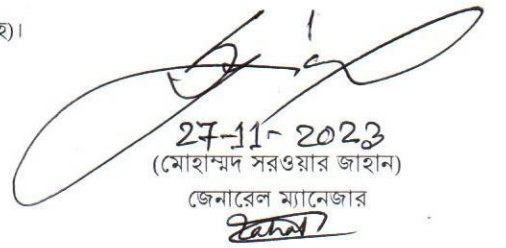 হ)।
27-11-2023
(মোহাম্মদ সরওয়ার জাহান)
জেনারেল ম্যানেজার